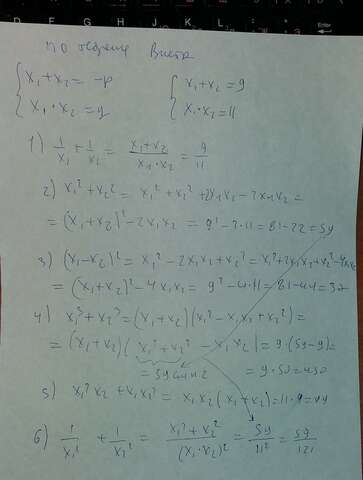 по теореме Виета
{x₁+x₂ = -p {x₁+x₂ = 9
{x₁·x₂ = q {x₁·x₂ = 11
1) 1/x₁ + 1/x₂ = (x₁+x₂)/(x₁·x₂) = 9/11
2) x₁² + x₂² = x₁² + x₂² + 2x₁x₂ - 2x₁x₂ =
= (x₁+x₂)² - 2x₁x₂ = 9² - 2·11 = 81 - 22 = 59
3) (x₁-x₂)² = x₁² - 2x₁x₂ + x₂² = x₁² + 2x₁x₂ + x₂² - 4x₁x₂
= (x₁+x₂)² - 4x₁x₂ = 9² - 4·11 = 81 - 44 = 37
4) x₁³ + x₂³ = (x₁+x₂)(x₁² - x₁x₂ + x₂²) =
= (x₁+x₂)(x₁² + x₂² - x₁x₂) = 9·(59-9) =
= 59 = 9·50 = 450
5) x₁²x₂ + x₁x₂² = x₁x₂(x₁+x₂) = 11·9 = 99
6) 1/x₁² + 1/x₂² = (x₁² + x₂²)/(x₁·x₂)² = 59/11² = 59/121